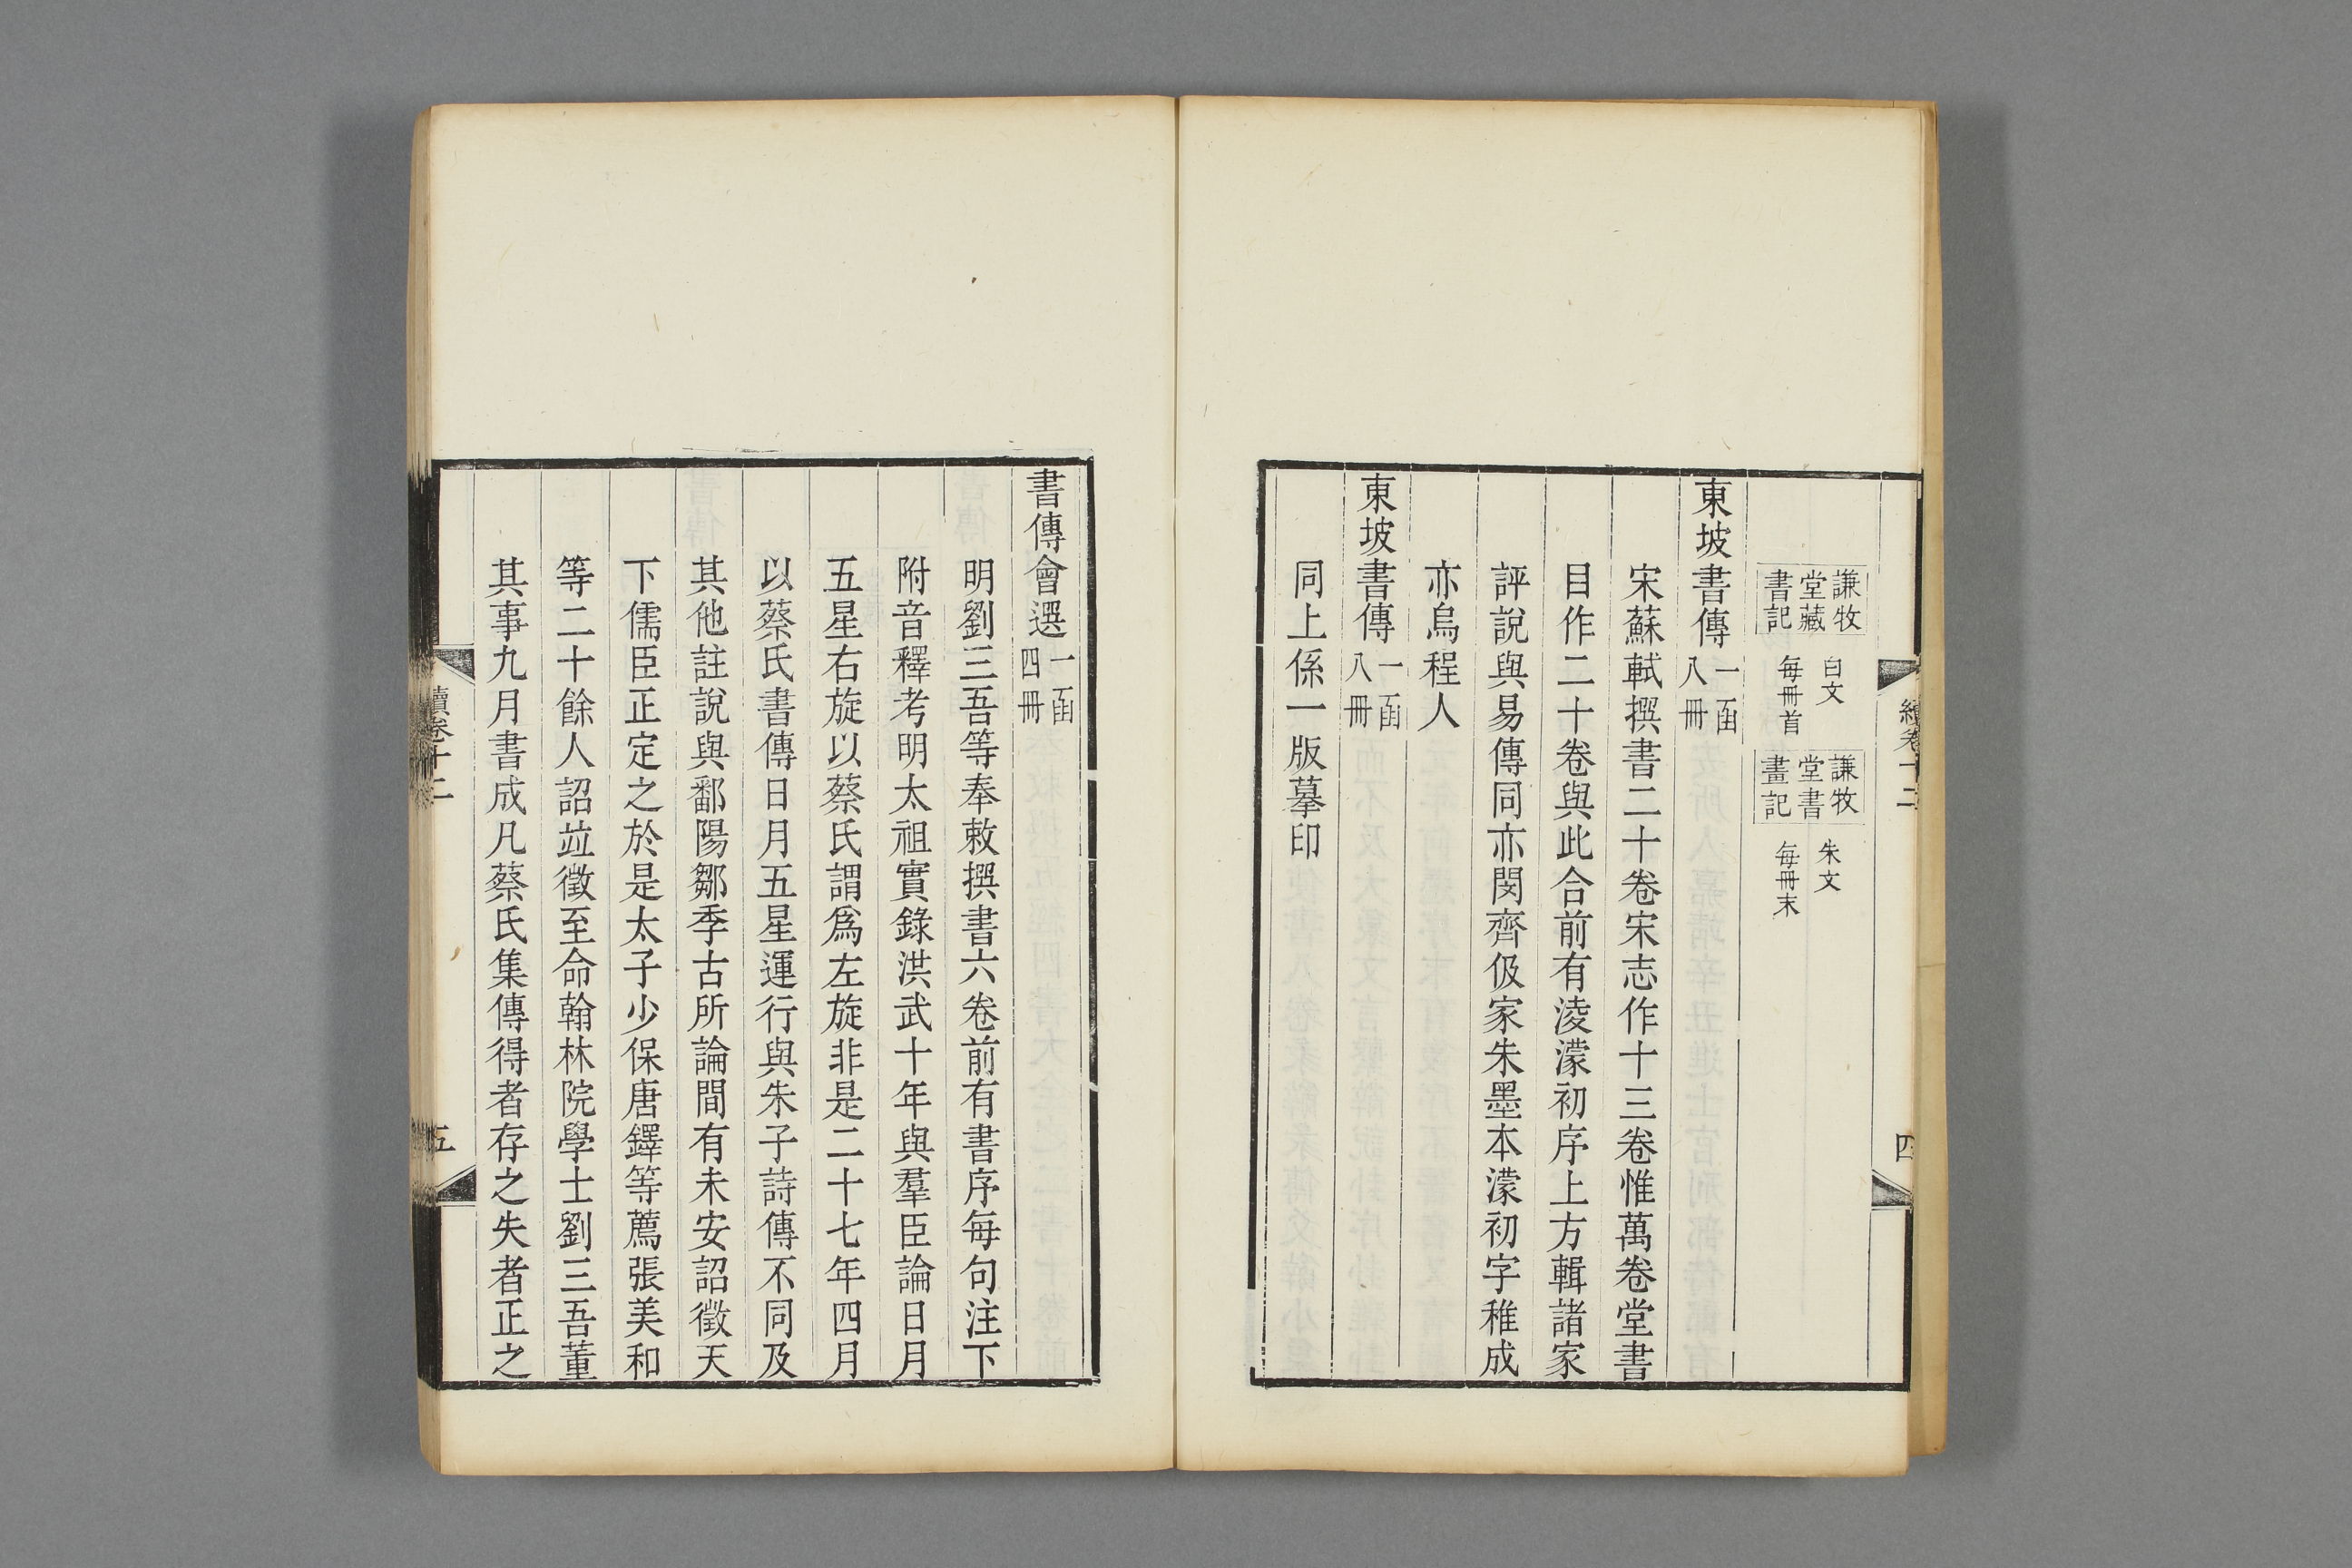 續卷十二
四
謙牧
堂藏
書記
白文
每冊首
謙牧
堂書
畫記
朱文
每冊末
東坡書傳
一函
八冊
宋蘇軾撰書二十卷宋志作十三卷惟萬卷堂書
目作二十卷與此合前有淩濛初序上方輯諸家
評說與易傳同亦閔齊伋家朱墨本濛初字稚成
亦烏程人
東坡書傳
一函
八冊
同上係一版摹印
書傳會選
一函
四冊
明劉三吾等奉敕撰書六卷前有書序每句注下
附音釋考明太祖實錄洪武十年與羣臣論日月
五星右旋以蔡氏謂爲左旋非是二十七年四月
以蔡氏書傳日月五星運行與朱子詩傳不同及
其他註說與鄱陽鄒季古所論間有未安詔徵天
下儒臣正定之於是太子少保唐鐸等薦張美和
等二十餘人詔竝徵至命翰林院學士劉三吾董
其事九月書成凡蔡氏集傳得者存之失者正之
續卷十二
五